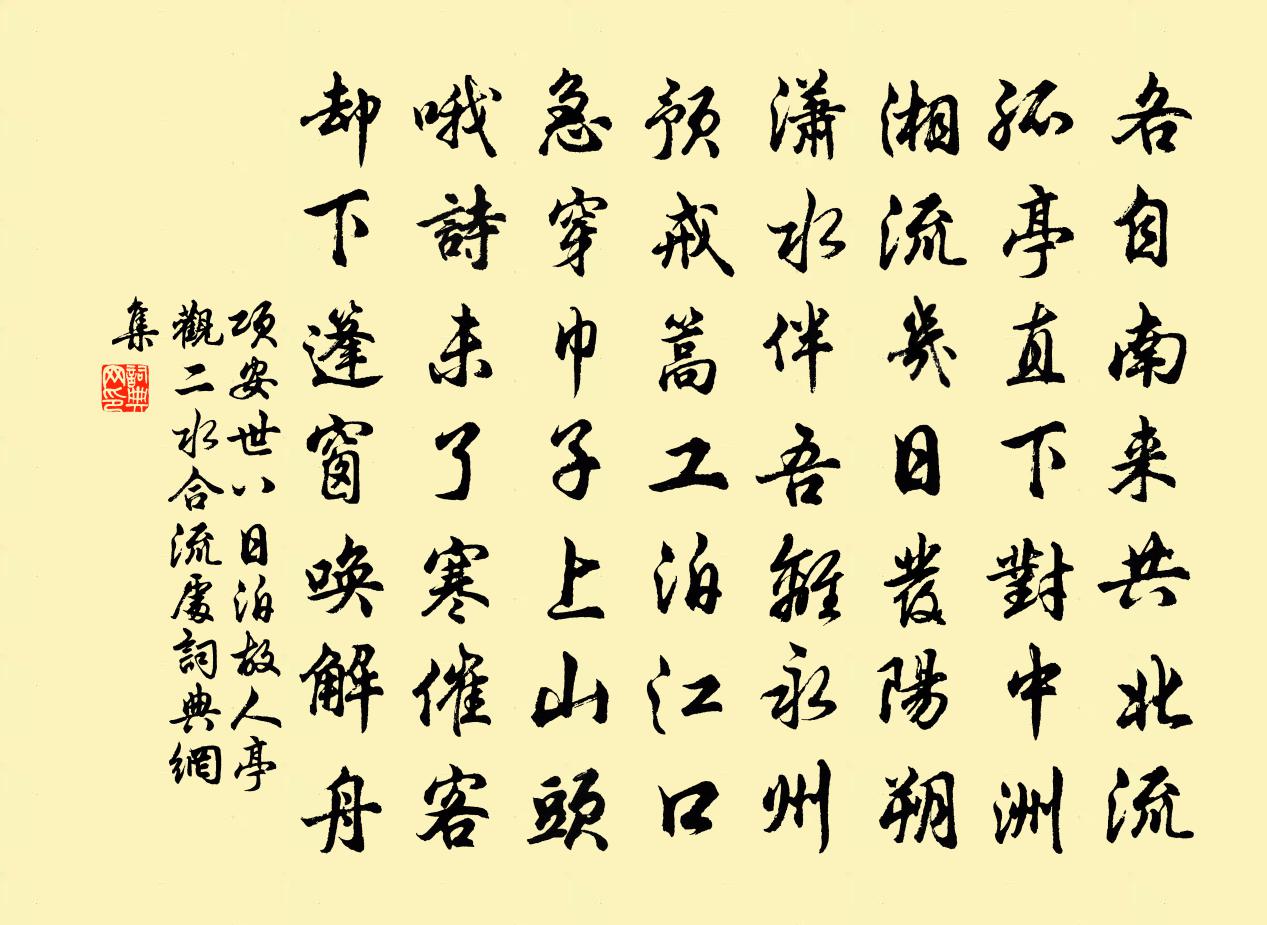 各自南来共北流
孤亭直下對中洲
湘流幾日發陽朔
瀟水伴吾離永州
預戒蒿工泊江口
急穿巾子上山頭
哦詩未了寒催客
却下篷窗喚解舟
項安世八日泊故人亭
觀二水合流處詞典網
集
詞典
网印